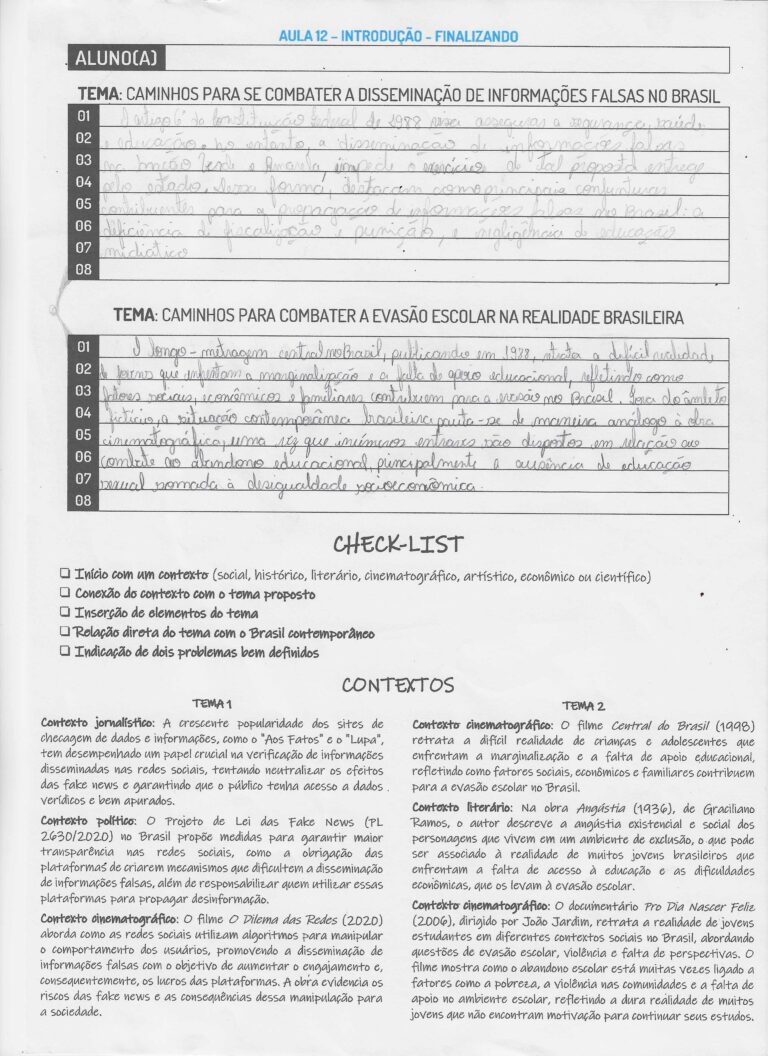 AULA 12 – INTRODUÇÃO - FINALIZANDO
ALUNO(A)
TEMA: CAMINHOS PARA SE COMBATER A DISSEMINAÇÃO DE INFORMAÇÕES FALSAS NO BRASIL
01 artigo 6 da Constituição Federal de 1988 assegurar a segurança, saúde
02 e educação. no entanto, a disseminação de informações falsas
03 na nação Verde e Amarela, impede o exercício de tal proposta entregue
04 pelo estado, dessa forma, destacam como principais conjunturas
05 contribuentes para a propagação de informações falsas no Brasil: a
06 deficiência de fiscalização e punição, e negligência de educação
07 midiático
08
TEMA: CAMINHOS PARA COMBATER A EVASÃO ESCOLAR NA REALIDADE BRASILEIRA
01 O longo-metragem central no Brasil, publicando em 1988, trata a difícil realidade
02 de jovens que enfrentam a marginalização e a falta de apoio educacional, refletindo como
03 fatores sociais, econômicos e familiares contribuem para a evasão no Brasil. Fora do âmbito
04 fictício, a situação contemporânea brasileira pauta-se de maneira análogo à obra
05 cinematográfica, uma vez que inúmeros entraves são dispostos em relação ao
06 combate ao abandono educacional, principalmente a ausência de educação
07 sexual somada à desigualdade socioeconômica.
08
CHECK-LIST
❑ Início com um contexto (social, histórico, literário, cinematográfico, artístico, econômico ou científico)
❑ Conexão do contexto com o tema proposto
❑ Inserção de elementos do tema
❑ Relação direta do tema com o Brasil contemporâneo
❑ Indicação de dois problemas bem definidos
CONTEXTOS
TEMA 1
Contexto jornalístico: A crescente popularidade dos sites de
checagem de dados e informações, como o "Aos Fatos" e o "Lupa",
tem desempenhado um papel crucial na verificação de informações
disseminadas nas redes sociais, tentando neutralizar os efeitos
das fake news e garantindo que o público tenha acesso a dados
verídicos e bem apurados.
Contexto político: O Projeto de Lei das Fake News (PL
2630/2020) no Brasil propõe medidas para garantir maior
transparência nas redes sociais, como a obrigação das
plataformas de criarem mecanismos que dificultem a disseminação
de informações falsas, além de responsabilizar quem utilizar essas
plataformas para propagar desinformação.
Contexto cinematográfico: O filme O Dilema das Redes (2020)
aborda como as redes sociais utilizam algoritmos para manipular
o comportamento dos usuários, promovendo a disseminação de
informações falsas com o objetivo de aumentar o engajamento e,
consequentemente, os lucros das plataformas. A obra evidencia os
riscos das fake news e as consequências dessa manipulação para
a sociedade.
TEMA 2
Contexto cinematográfico: O filme Central do Brasil (1998)
retrata a difícil realidade de crianças e adolescentes que
enfrentam a marginalização e a falta de apoio educacional,
refletindo como fatores sociais, econômicos e familiares contribuem
para a evasão escolar no Brasil.
Contexto literário: Na obra Angústia (1936), de Graciliano
Ramos, o autor descreve a angústia existencial e social dos
personagens que vivem em um ambiente de exclusão, o que pode
ser associado à realidade de muitos jovens brasileiros que
enfrentam a falta de acesso à educação e as dificuldades
econômicas, que os levam à evasão escolar.
Contexto cinematográfico: O documentário Pro Dia Nascer Feliz
(2006), dirigido por João Jardim, retrata a realidade de jovens
estudantes em diferentes contextos sociais no Brasil, abordando
questões de evasão escolar, violência e falta de perspectivas. O
filme mostra como o abandono escolar está muitas vezes ligado a
fatores como a pobreza, a violência nas comunidades e a falta de
apoio no ambiente escolar, refletindo a dura realidade de muitos
jovens que não encontram motivação para continuar seus estudos.